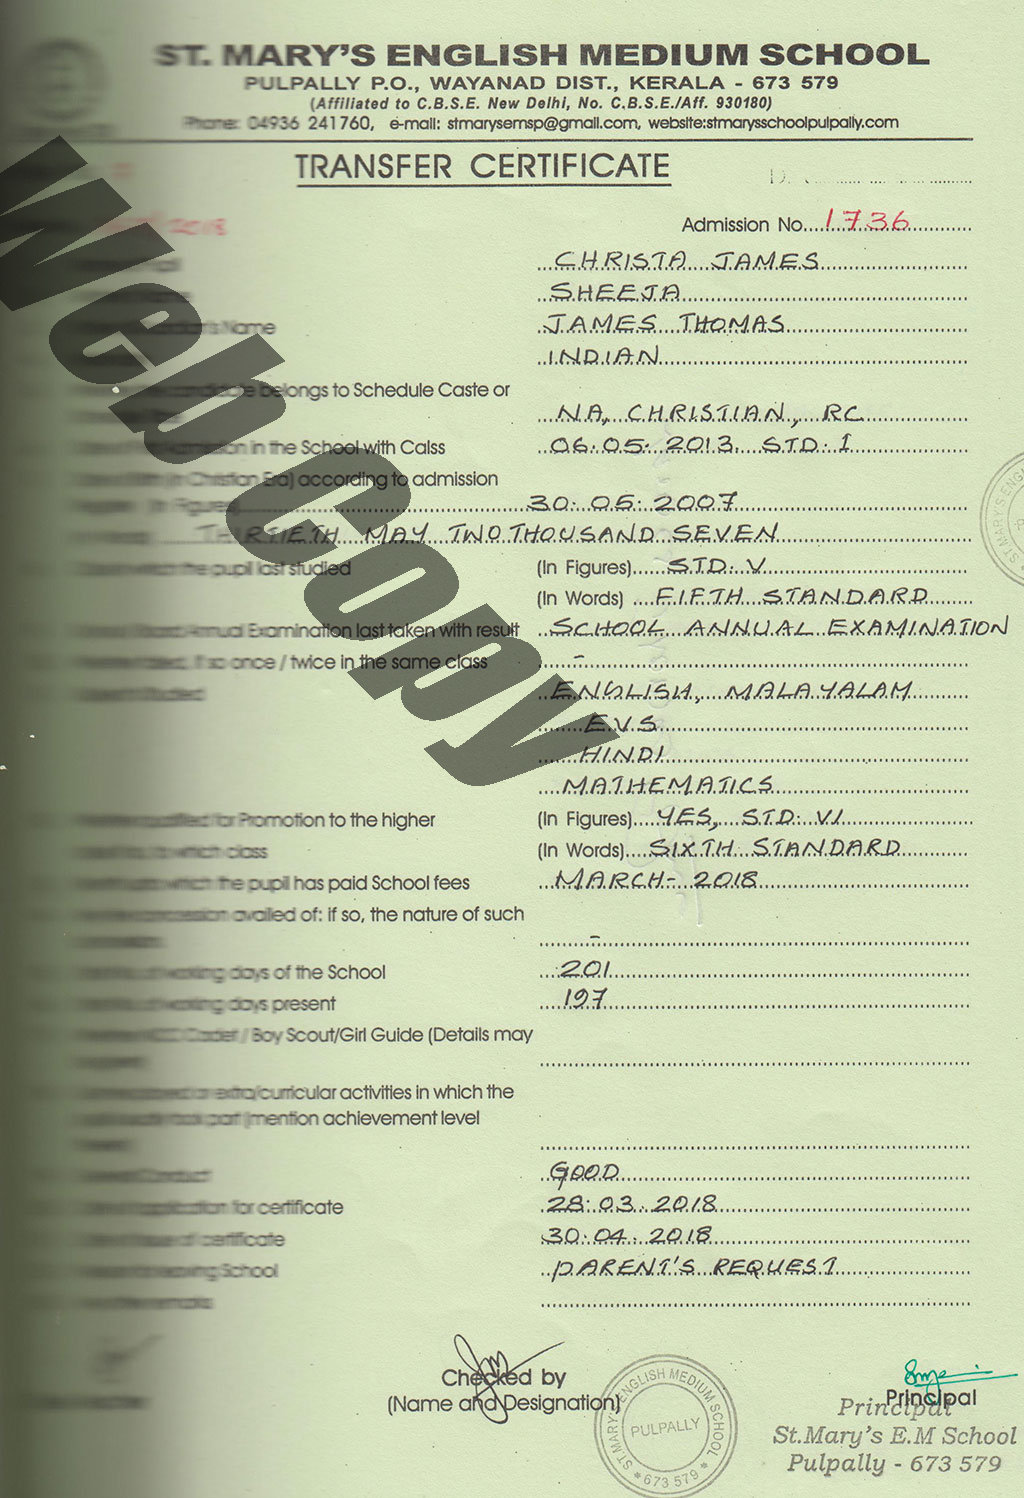 ST. MARY'S ENGLISH MEDIUM SCHOOL
PULPALLY P.O., WAYANAD DIST., KERALA - 673 579
(Affiliated to C.B.S.E. New Delhi, No. C.B.S.E./Aff. 930180)
Phone: 04936 241760, e-mail: stmarysemsp@gmail.com, website:stmarysschoolpulpally.com
TRANSFER CERTIFICATE
2018 Admission No. 1736
CHRISTA JAMES
SHEEJA
Name JAMES THOMAS
INDIAN
candidate belongs to Schedule Caste or
NA, CHRISTIAN, RC
in the School with Calss 06.05.2013. STD: I
(in Christian Era) according to admission
(In Figures) 30.05.2007
THIRTIETH MAY TWO THOUSAND SEVEN
which the pupil last studied (In Figures) STD: V
(In Words) FIFTH STANDARD
Annual Examination last taken with result SCHOOL ANNUAL EXAMINATION
if so once / twice in the same class -
Studied ENGLISH, MALAYALAM
E.V.S
HINDI
MATHEMATICS
for Promotion to the higher (In Figures) YES, STD: VI
which class (In Words) SIXTH STANDARD
which the pupil has paid School fees MARCH - 2018
availed of: if so, the nature of such
-
working days of the School 201
working days present 197
Cadet / Boy Scout/Girl Guide (Details may
extra/curricular activities in which the
took part (mention achievement level
Conduct GOOD
application for certificate 28.03.2018
issue of certificate 30.04.2018
leaving School PARENT'S REQUEST
remarks
Checked by
(Name and Designation)
Principal
Principal
St.Mary's E.M School
Pulpally - 673 579
ST.MARY'S ENGLISH MEDIUM SCHOOL
PULPALLY
* 673 579 *
ST.MARY'S ENG
Web Copy